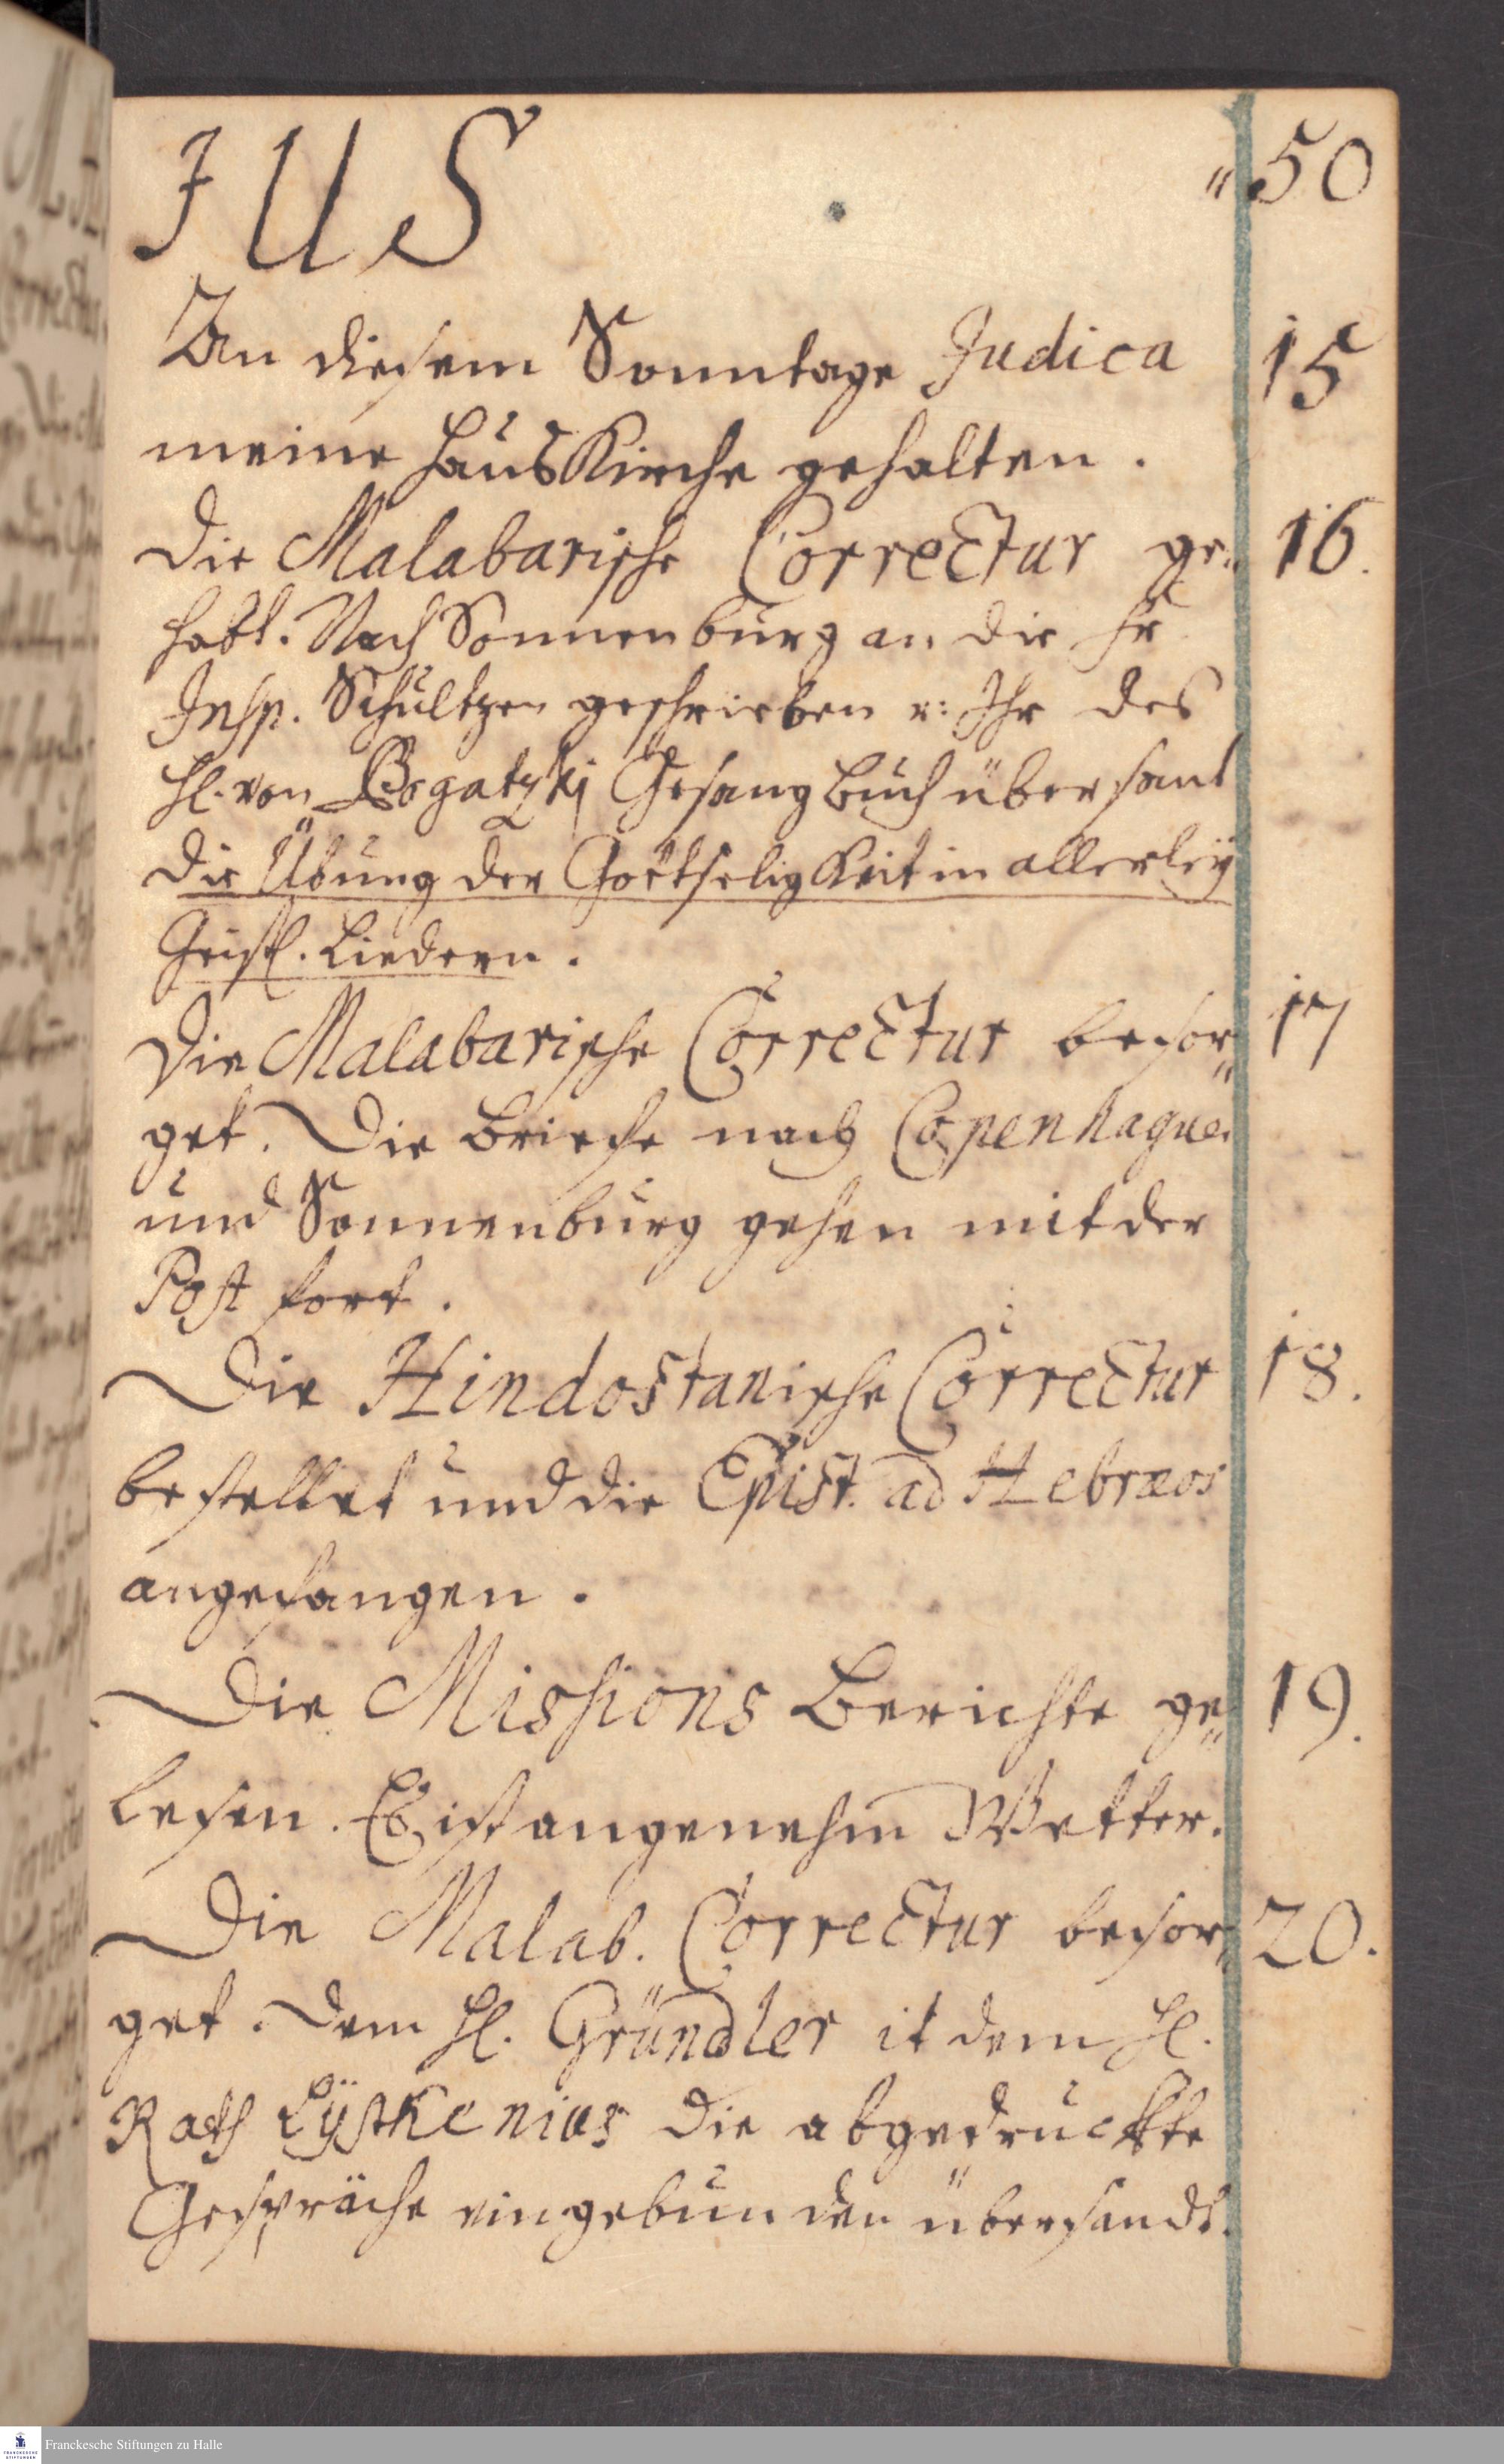 JUS „50
An diesem Sonntage Judica 15
meine HausKirche gehalten.
Die Malabarische Correctur ge„ 16.
habt. Nach Sonnenburg an die Fr
Insp. Schultzen geschrieben u: Ihr des
H. von Bogatzkj Gesang Buch übersant
die Übung der Gottseligkeit in allerleÿ
Geistl. Liedern.
Die Malabarische Correctur besor„ 17
get. Die Briefe nach Copenhagen
und Sonnenburg gehen mit der
Post fort.
Die Hindostanische Correctur 18.
bestellet und die Epist. ad Hebræos
angefangen.
Die Missions Berichte ge„ 19.
lesen. Es ist angenehm Wetter.
Die Malab. Correctur besor„ 20.
get. Dem H. Gründler it dem H.
Rath Lÿsthenius die abgedruckte
Gespräche eingebunden übersandt.
Franckesche Stiftungen zu Halle
FRANCKESCHE
STIFTUNGEN